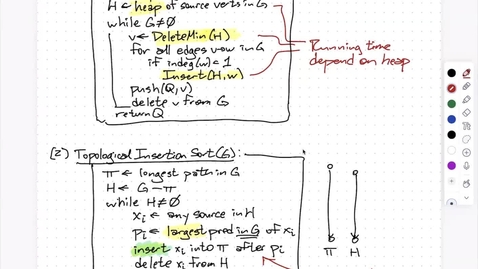 H ← heap of source verts in G
while G≠∅
v ← DeleteMin(H)
for all edges v→w in G
if indeg(w)=1
Insert(H,w)
push(Q,v)
delete v from G
return Q
Running time
depend on heap
(2) Topological Insertion Sort(G):
π ← longest path in G
H ← G - π
while H≠∅
xi ← any source in H
pi ← largest pred in G of xi
insert xi into π after pi
delete xi from H
π H